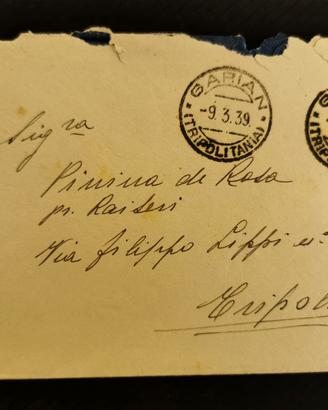 GARIAN
-9.3.39.
(TRIPOLITANIA)
Sig.ra
Pinina de Rosa
pr. Raiseri
Via filippo Lippi
Tripoli